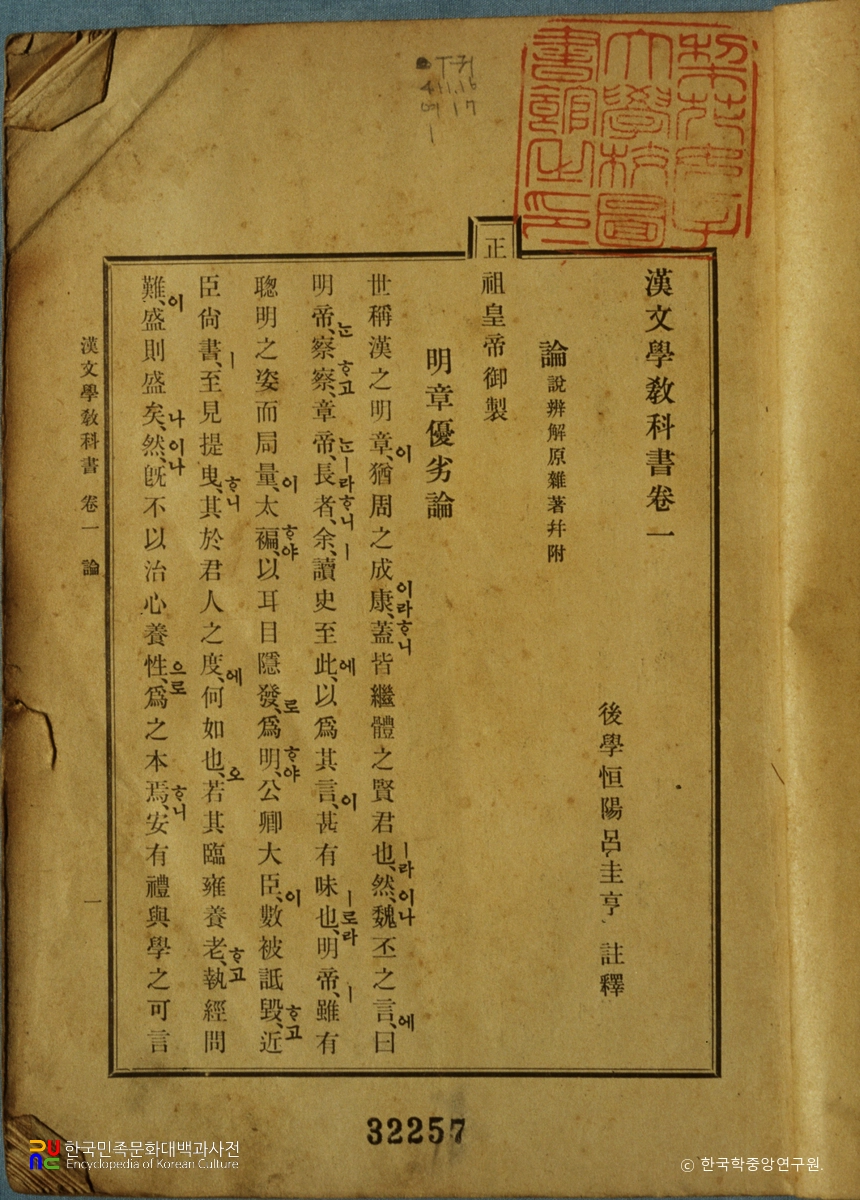 漢文學敎科書卷一
後學恒陽呂圭亨 註釋
論 說辨解原雜著幷附
正祖皇帝御製
明章優劣論
世稱漢之明章、이猶周之成康、이라ᄒᆞ니蓋皆繼體之賢君也、ㅣ라然、이나魏丕之言、에曰
明帝、ᄂᆞᆫ察察、ᄒᆞ고章帝、ᄂᆞᆫ長者、ㅣ라ᄒᆞ니余、ㅣ讀史至此、에以爲其言、이甚有味也、ㅣ로라明帝、ㅣ雖有
聰明之姿而局量、이太褊、ᄒᆞ야以耳目隱發、로爲明、ᄒᆞ야公卿大臣、이數被詆毁、ᄒᆞ고近
臣尙書、ㅣ至見提曳、ᄒᆞ니其於君人之度、에何如也、오若其臨雍養老、ᄒᆞ고執經問
難、이盛則盛矣、나然、이나旣不以治心養性、으로爲之本焉、ᄒᆞ니安有禮與學之可言
漢文學敎科書 卷一 論 一
411.16
1
梨花女子大學校圖書館之印
32257
한국민족문화대백과사전
Encyclopedia of Korean Culture
© 한국학중앙연구원.